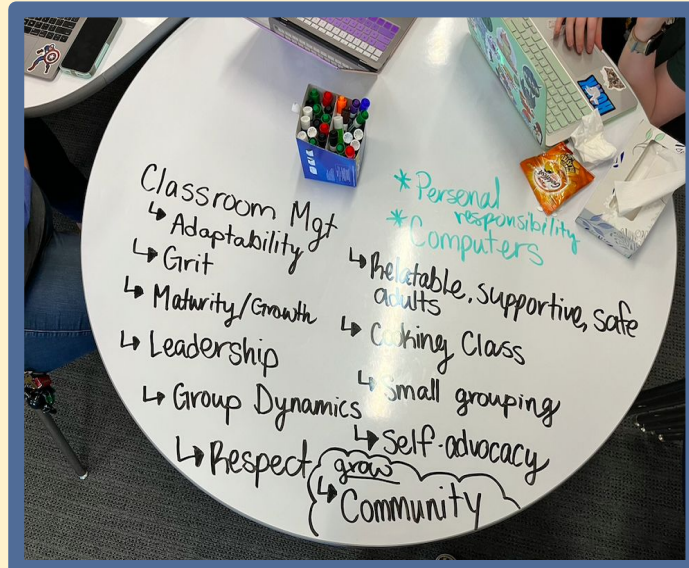 Classroom Mgt
↳ Adaptability
↳ Grit
↳ Maturity/Growth
↳ Leadership
↳ Group Dynamics
↳ Respect
* Personal
responsibility
* Computers
↳ Relatable, supportive, safe
adults
↳ Cooking Class
↳ Small grouping
↳ Self-advocacy
grow
↳ Community